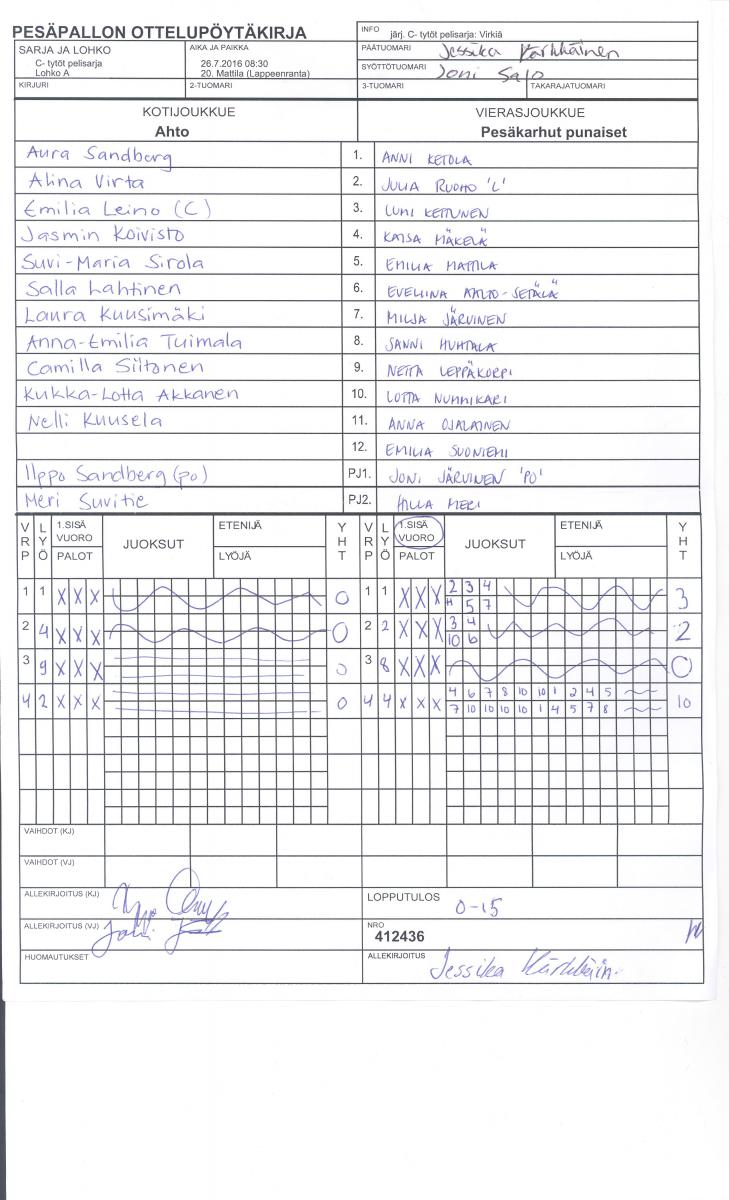 PESÄPALLON OTTELUPÖYTÄKIRJA
INFO järj. C- tytöt pelisarja: Virkiä
SARJA JA LOHKO
C- tytöt pelisarja
Lohko A
AIKA JA PAIKKA
26.7.2016 08:30
20. Mattila (Lappeenranta)
PÄÄTUOMARI Jessika Kärkkäinen
SYÖTTÖTUOMARI Joni Salo
KIRJURI 2-TUOMARI 3-TUOMARI TAKARAJATUOMARI
KOTIJOUKKUE VIERASJOUKKUE
Ahto Pesäkarhut punaiset
Aura Sandberg 1. ANNI KETOLA
Alina Virta 2. JULIA RUOHO 'L'
Emilia Leino (C) 3. LUMI KETTUNEN
Jasmin Koivisto 4. KAISA MÄKELÄ
Suvi-Maria Sirola 5. EMILIA MATTILA
Salla Lahtinen 6. EVELIINA AALTO-SETÄLÄ
Laura Kuusimäki 7. MILJA JÄRVINEN
Anna-Emilia Tuimala 8. SANNI HUHTALA
Camilla Siltanen 9. NETTA LEPPÄKORPI
Kukka-Lotta Akkanen 10. LOTTA NUMMIKARI
Nelli Kuusela 11. ANNA OJALAINEN
12. EMILIA SUONIEMI
Ilppo Sandberg (po) PJ1. JONI JÄRVINEN 'PO'
Meri Suvitie PJ2. HILLA MERI
VRP LYÖ 1.SISÄ VUORO PALOT JUOKSUT ETENIJÄ LYÖJÄ YHT VRP LYÖ 1.SISÄ VUORO PALOT JUOKSUT ETENIJÄ LYÖJÄ YHT
1 1 X X X 0 1 1 X X X 2 3 4 3
4 5 7
2 4 X X X 0 2 2 X X X 3 4 2
10 6
3 9 X X X 0 3 8 X X X 0
4 2 X X X 0 4 4 X X X 4 6 7 8 10 10 1 2 4 5 10
7 10 10 10 10 1 4 5 7 8
VAIHDOT (KJ)
VAIHDOT (VJ)
ALLEKIRJOITUS (KJ) LOPPUTULOS 0-15
ALLEKIRJOITUS (VJ) Joni NRO
412436
HUOMAUTUKSET ALLEKIRJOITUS Jessika Kärkkäin